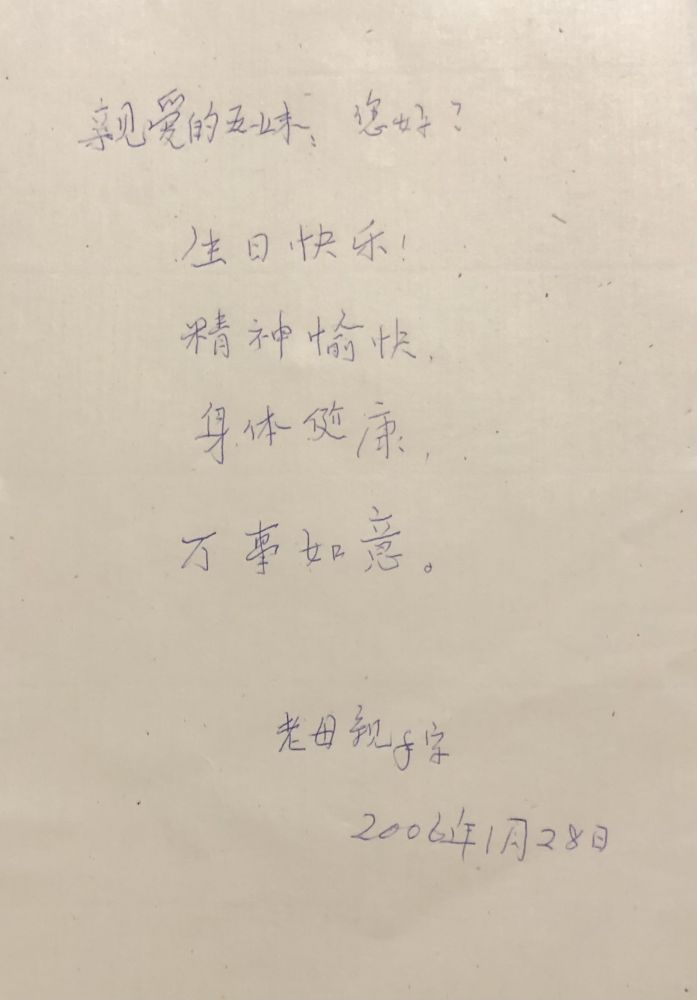 亲爱的五妹：您好？
生日快乐！
精神愉快，
身体健康，
万事如意。
老母亲手字
2006年1月28日